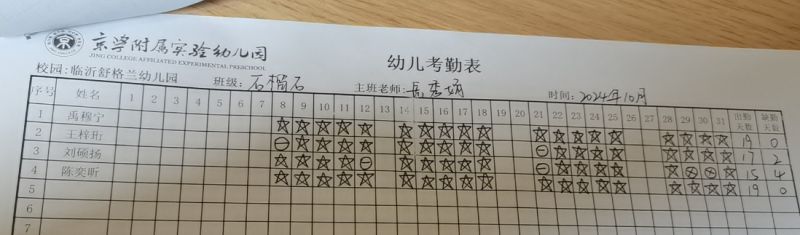 京学附属实验幼儿园
JING COLLEGE AFFILIATED EXPERIMENTAL PRESCHOOL
幼儿考勤表
校园:临沂舒格兰幼儿园 班级:石榴石 主班老师: 时间:2024年10月
序号 姓名 1 2 3 4 5 6 7 8 9 10 11 12 13 14 15 16 17 18 19 20 21 22 23 24 25 26 27 28 29 30 31 出勤天数 缺勤天数
1 禹穆宁 ☆ ☆ ☆ ☆ ☆ ☆ ☆ ☆ ☆ ☆ ☆ ☆ ☆ ☆ ☆ ☆ ☆ ☆ ☆ 19 0
2 王梓珩 ⊖ ☆ ☆ ☆ ☆ ☆ ☆ ☆ ☆ ☆ ⊖ ☆ ☆ ☆ ☆ ☆ ☆ ☆ ☆ 17 2
3 刘硕扬 ☆ ☆ ☆ ☆ ⊖ ☆ ☆ ☆ ☆ ☆ ⊖ ☆ ☆ ☆ ☆ ☆ ⊗ ⊗ ☆ 15 4
4 陈奕昕 ☆ ☆ ☆ ☆ ☆ ☆ ☆ ☆ ☆ ☆ ☆ ☆ ☆ ☆ ☆ ☆ ☆ ☆ ☆ 19 0
5
6
7